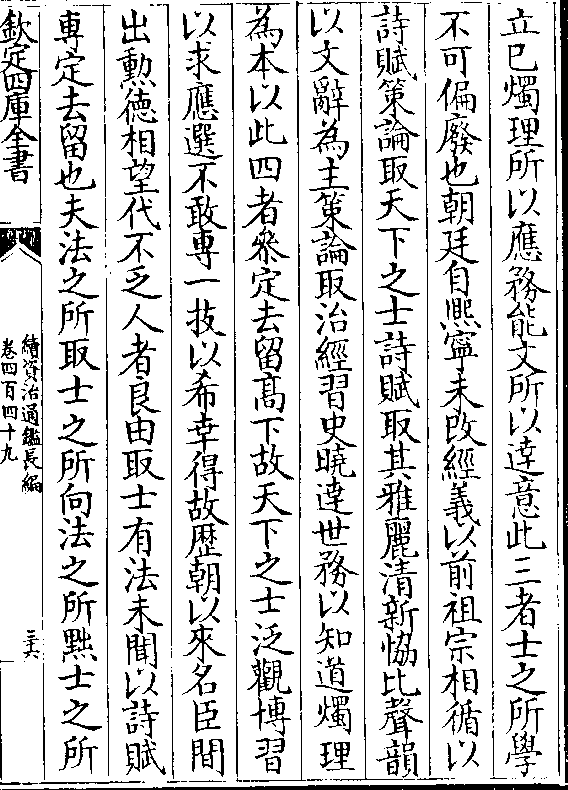 立已燭理所以應務能文所以達意此三者士之所學
不可偏廢也朝廷自熙寧未改經義以前祖宗相循以
詩賦策論取天下之士詩賦取其雅麗清新恊比聲韻
以文辭為主策論取治經習史曉達世務以知道燭理
為本以此四者叅定去留髙下故天下之士泛觀博習
以求應選不敢専一技以希幸得故歴朝以來名臣間
出勲徳相望代不乏人者良由取士有法未聞以詩賦
専定去留也夫法之所取士之所向法之所黜士之所
欽定四庫全書
續資治通鑑長編
卷四百四十九
三六